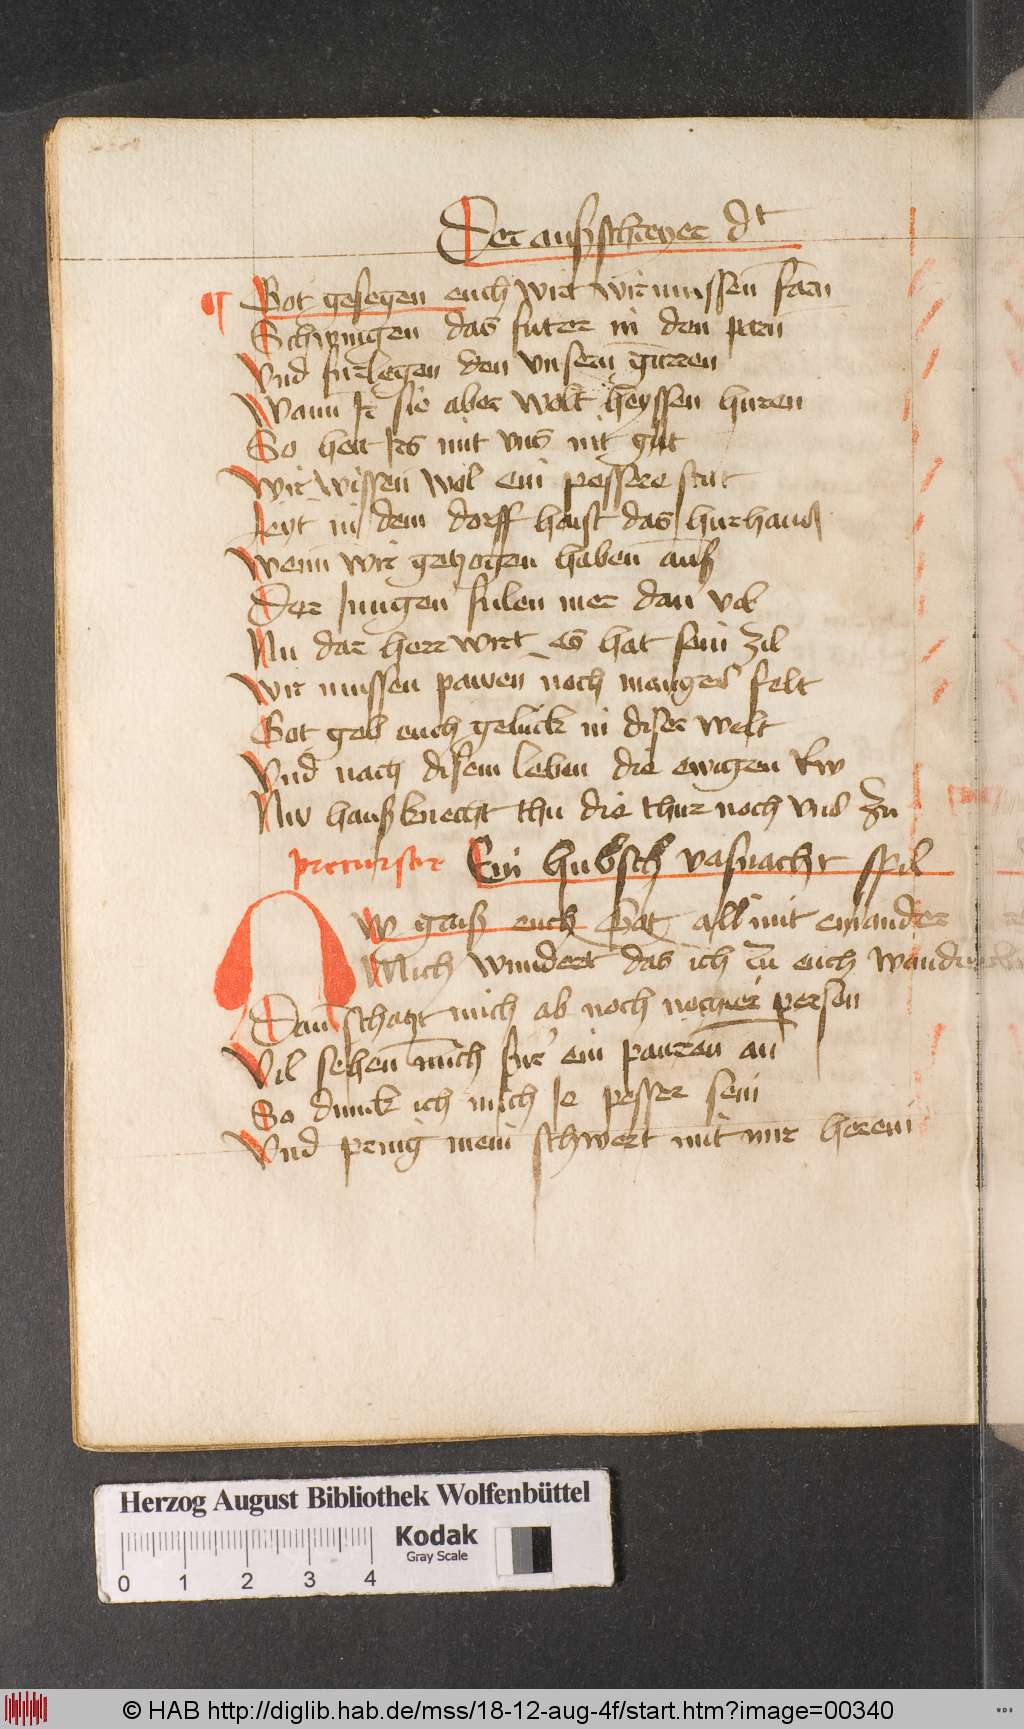 Der außschreyer dt
Got gesegen euch wirt wir mussen farn
Schwingen das futer in den parn
Vnd furlegen den vnsern gurren
Wann Ir sie aber wolt heyssen huren
So helt Irs mit vns nit gut
Wir wissen wol ein pessere stut
leyt in dem dorff haist das hurhaus
Wenn wir getzogen haben auß
Der Jungen fulen mer dan
Nu dar herr wirt es hat sein zil
Wir mussen pawen noch manges felt
Got geb euch geluck in diser welt
Vnd nach disem leben die ewigen Rw
Nw haußknecht thu die thur noch vns zu
precursor Ein hubsch vasnacht spil
Nw gruß euch Got all mit einander
Mich wundert das ich zu euch
Dann schatzt mich ab noch person
Vil sehen mich fur ein pauren an
So dunck ich mich Je pesser sein
Vnd pring mein schwert mit mir herein
Herzog August Bibliothek Wolfenbüttel
Kodak
Gray Scale
0 1 2 3 4
© HAB http://diglib.hab.de/mss/18-12-aug-4f/start.htm?image=00340